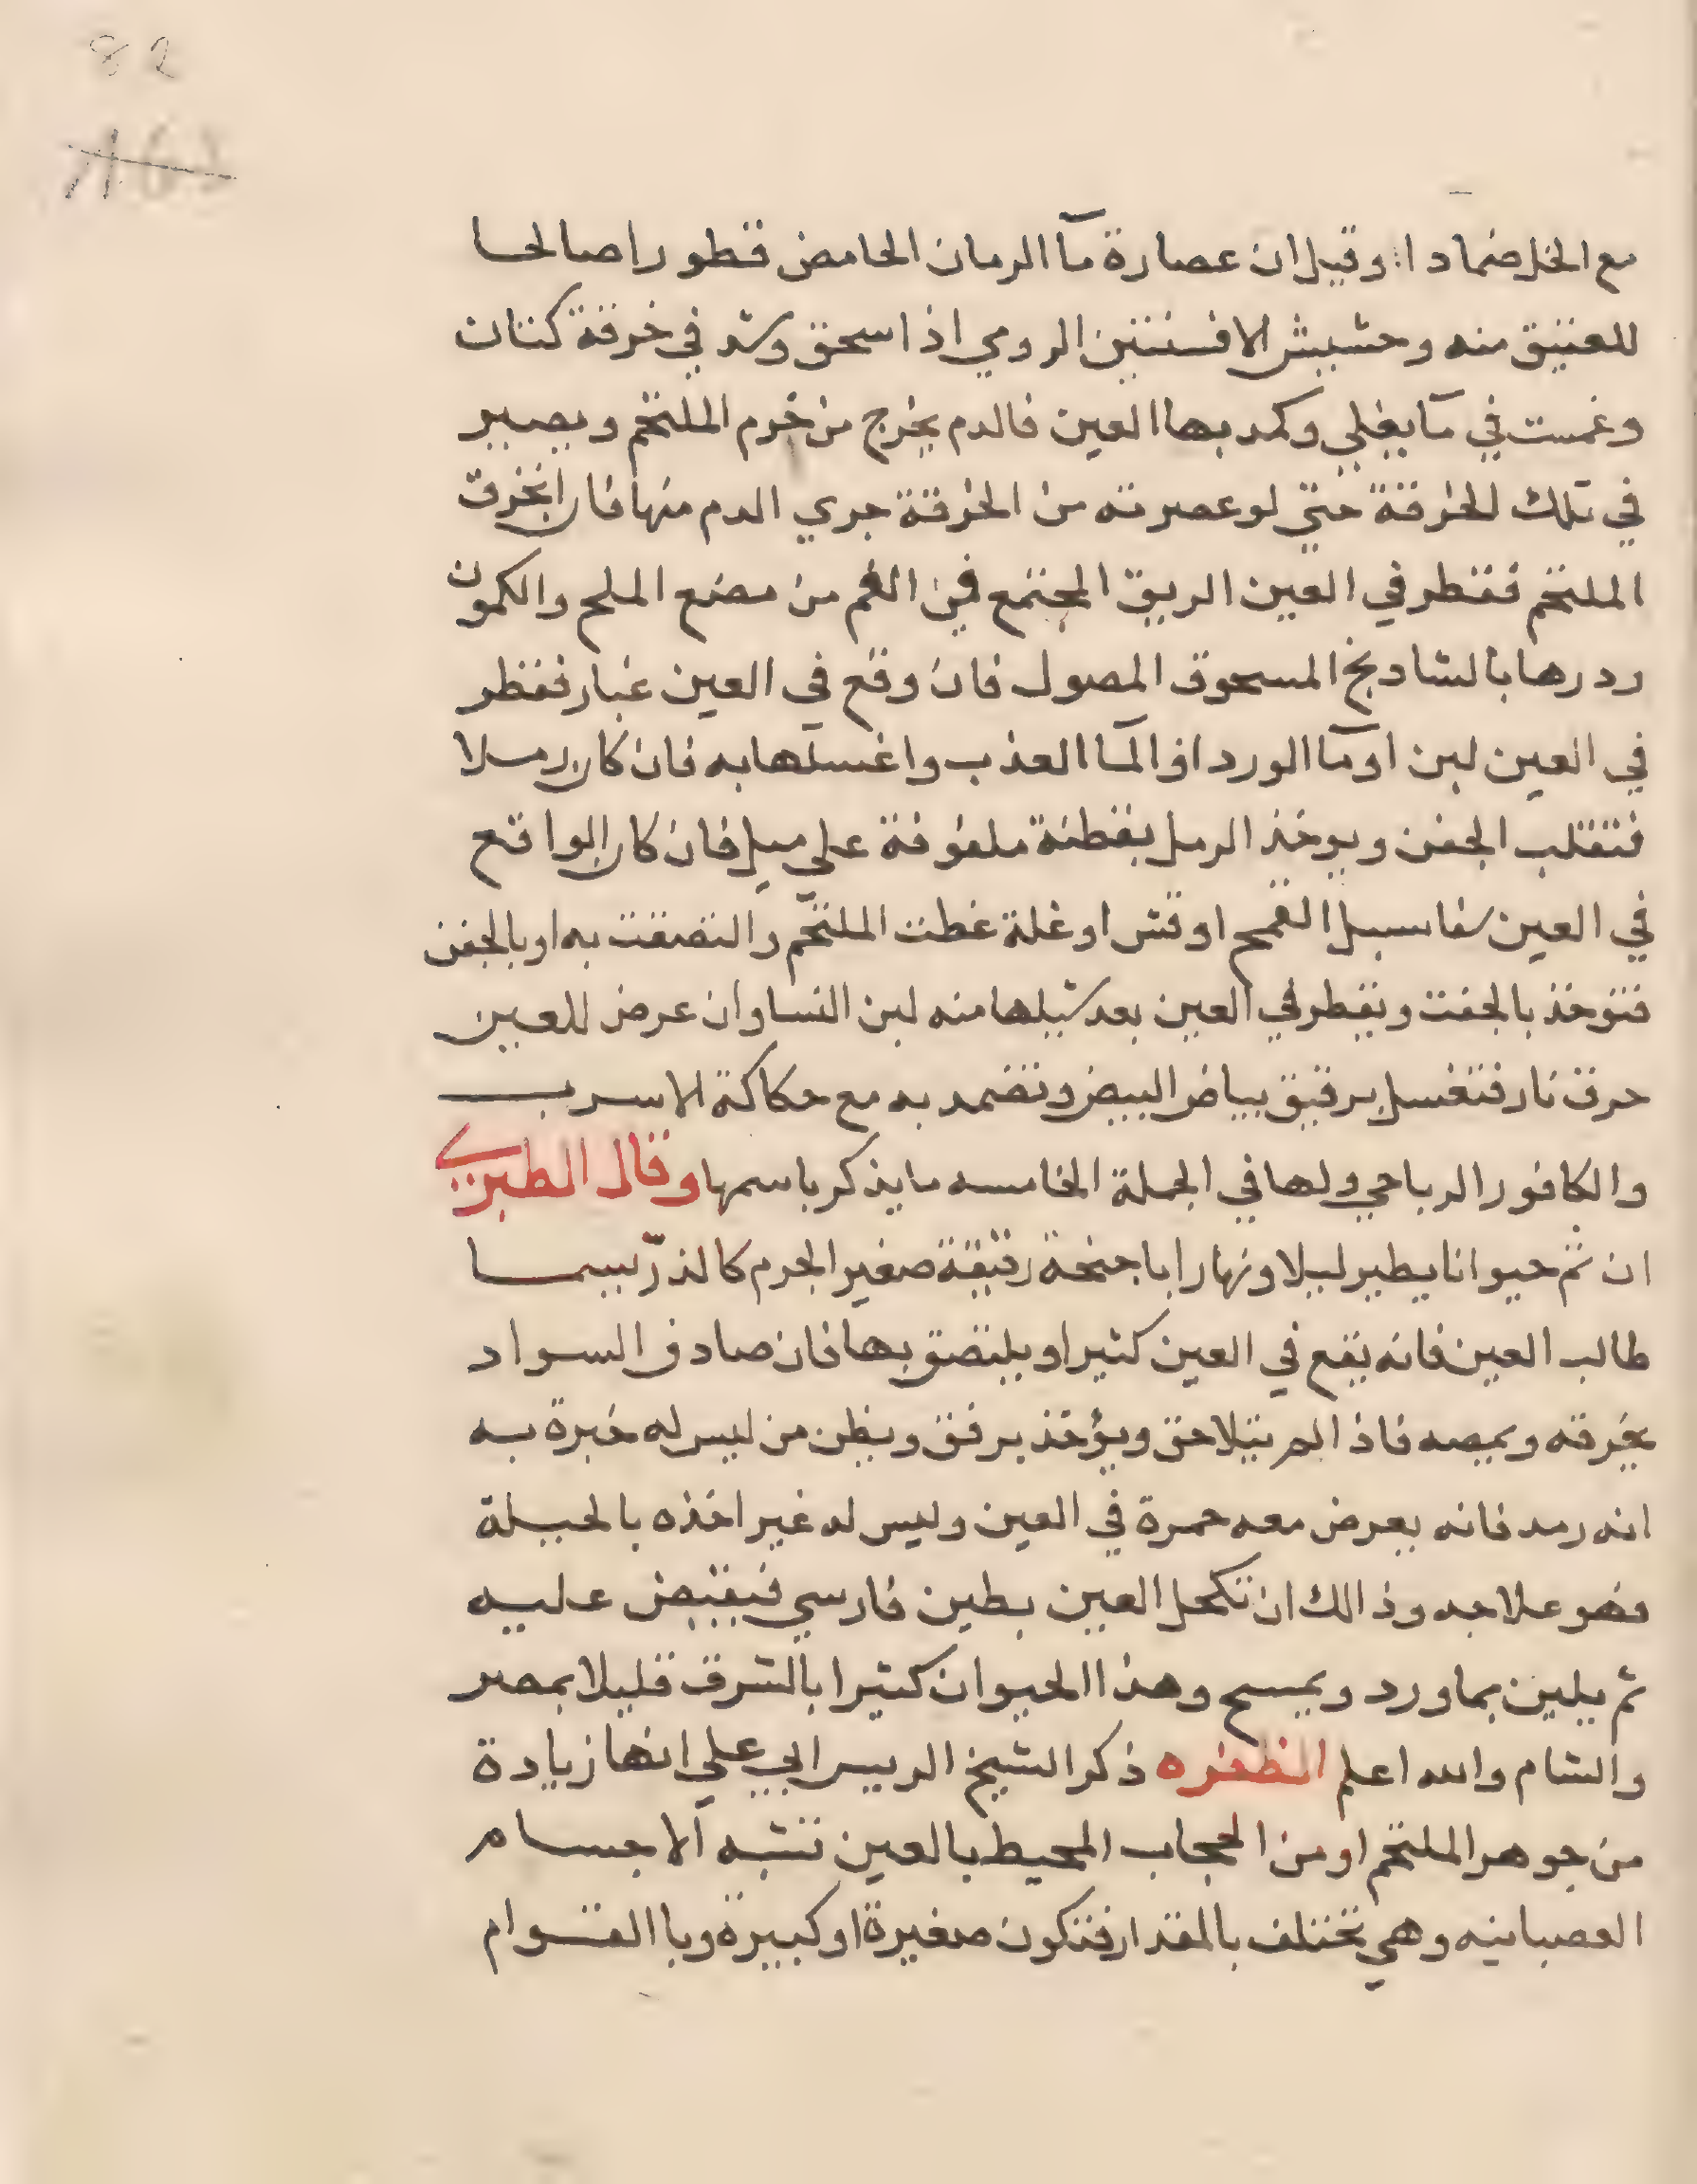 82
مع الخل ضمادا وقيل ان عصارة مآ الرمان الحامض قطورا صالحا
للعتيق منه وحشيش الافسنتين الرومي اذا سحق وشد في خرقة كتان
وغمست في مآ يغلي وكمد بها العين فالدم يخرج من خرم الملتحم ويصير
في تلك الخرقة حتي لو عصرته من الخرقة جري الدم منها فان انخرق
الملتحم فقطر في العين الريق المجتمع في الفم من مضغ الملح والكمون
ردرها بالشادنج المسحوق المصول فان وقع في العين غبار فقطر
في العين لبن او مآ الورد او المآ العذب واغسلها به فان كان رملا
فتقلب الجفن ويوخذ الرمل بقطنة ملفوفة علي ميل فان كان الواقع
في العين سفا سبل القمح او قش او غلة غطت الملتحم والتصقت به او بالجفن
فتوخذ بالجفت وتقطر في العين بعد شيلها منه لبن النسا وان عرض للعين
حرق نار فتغسل برقيق بياض البيض وتضمد به مع حكاكة الاسرب
والكافور الرباحي ولها في الجملة الخامسه ما يذكر باسمها وقال الطبري
ان ثم حيوانا يطير ليلا ونهارا باجنحة رقيقة صغير الجرم كالذر يسما
طالب العين فانه يقع في العين كثيرا ويلتصق بها فان صادف السواد
يخرقه ويمصه فاذا لم يتلاحق ويؤخذ برفق ويظن من ليس له خبرة به
انه رمد فانه يعرض معه حمرة في العين وليس له غير اخذه بالحيلة
فهو علاجه وذالك ان تكحل العين بطين فارسي فيقبض عليه
ثم يلين بماورد ويمسح وهذا الحيوان كثيرا بالشرق قليلا بمصر
والشام والله اعلم الظفره ذكر الشيخ الرييس ابي علي انها زيادة
من جوهر الملتحم او من الحجاب المحيط بالعين تشبه الاجسام
العصبانيه وهي تختلف بالمقدار فتكون صغيرة او كبيرة وبا القوام